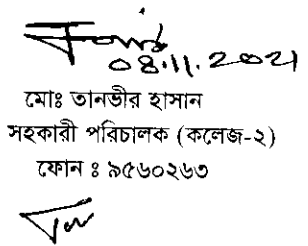 08.11.2021
মোঃ তানভীর হাসান
সহকারী পরিচালক (কলেজ-২)
ফোন ঃ ৯৫৬০২৬৩